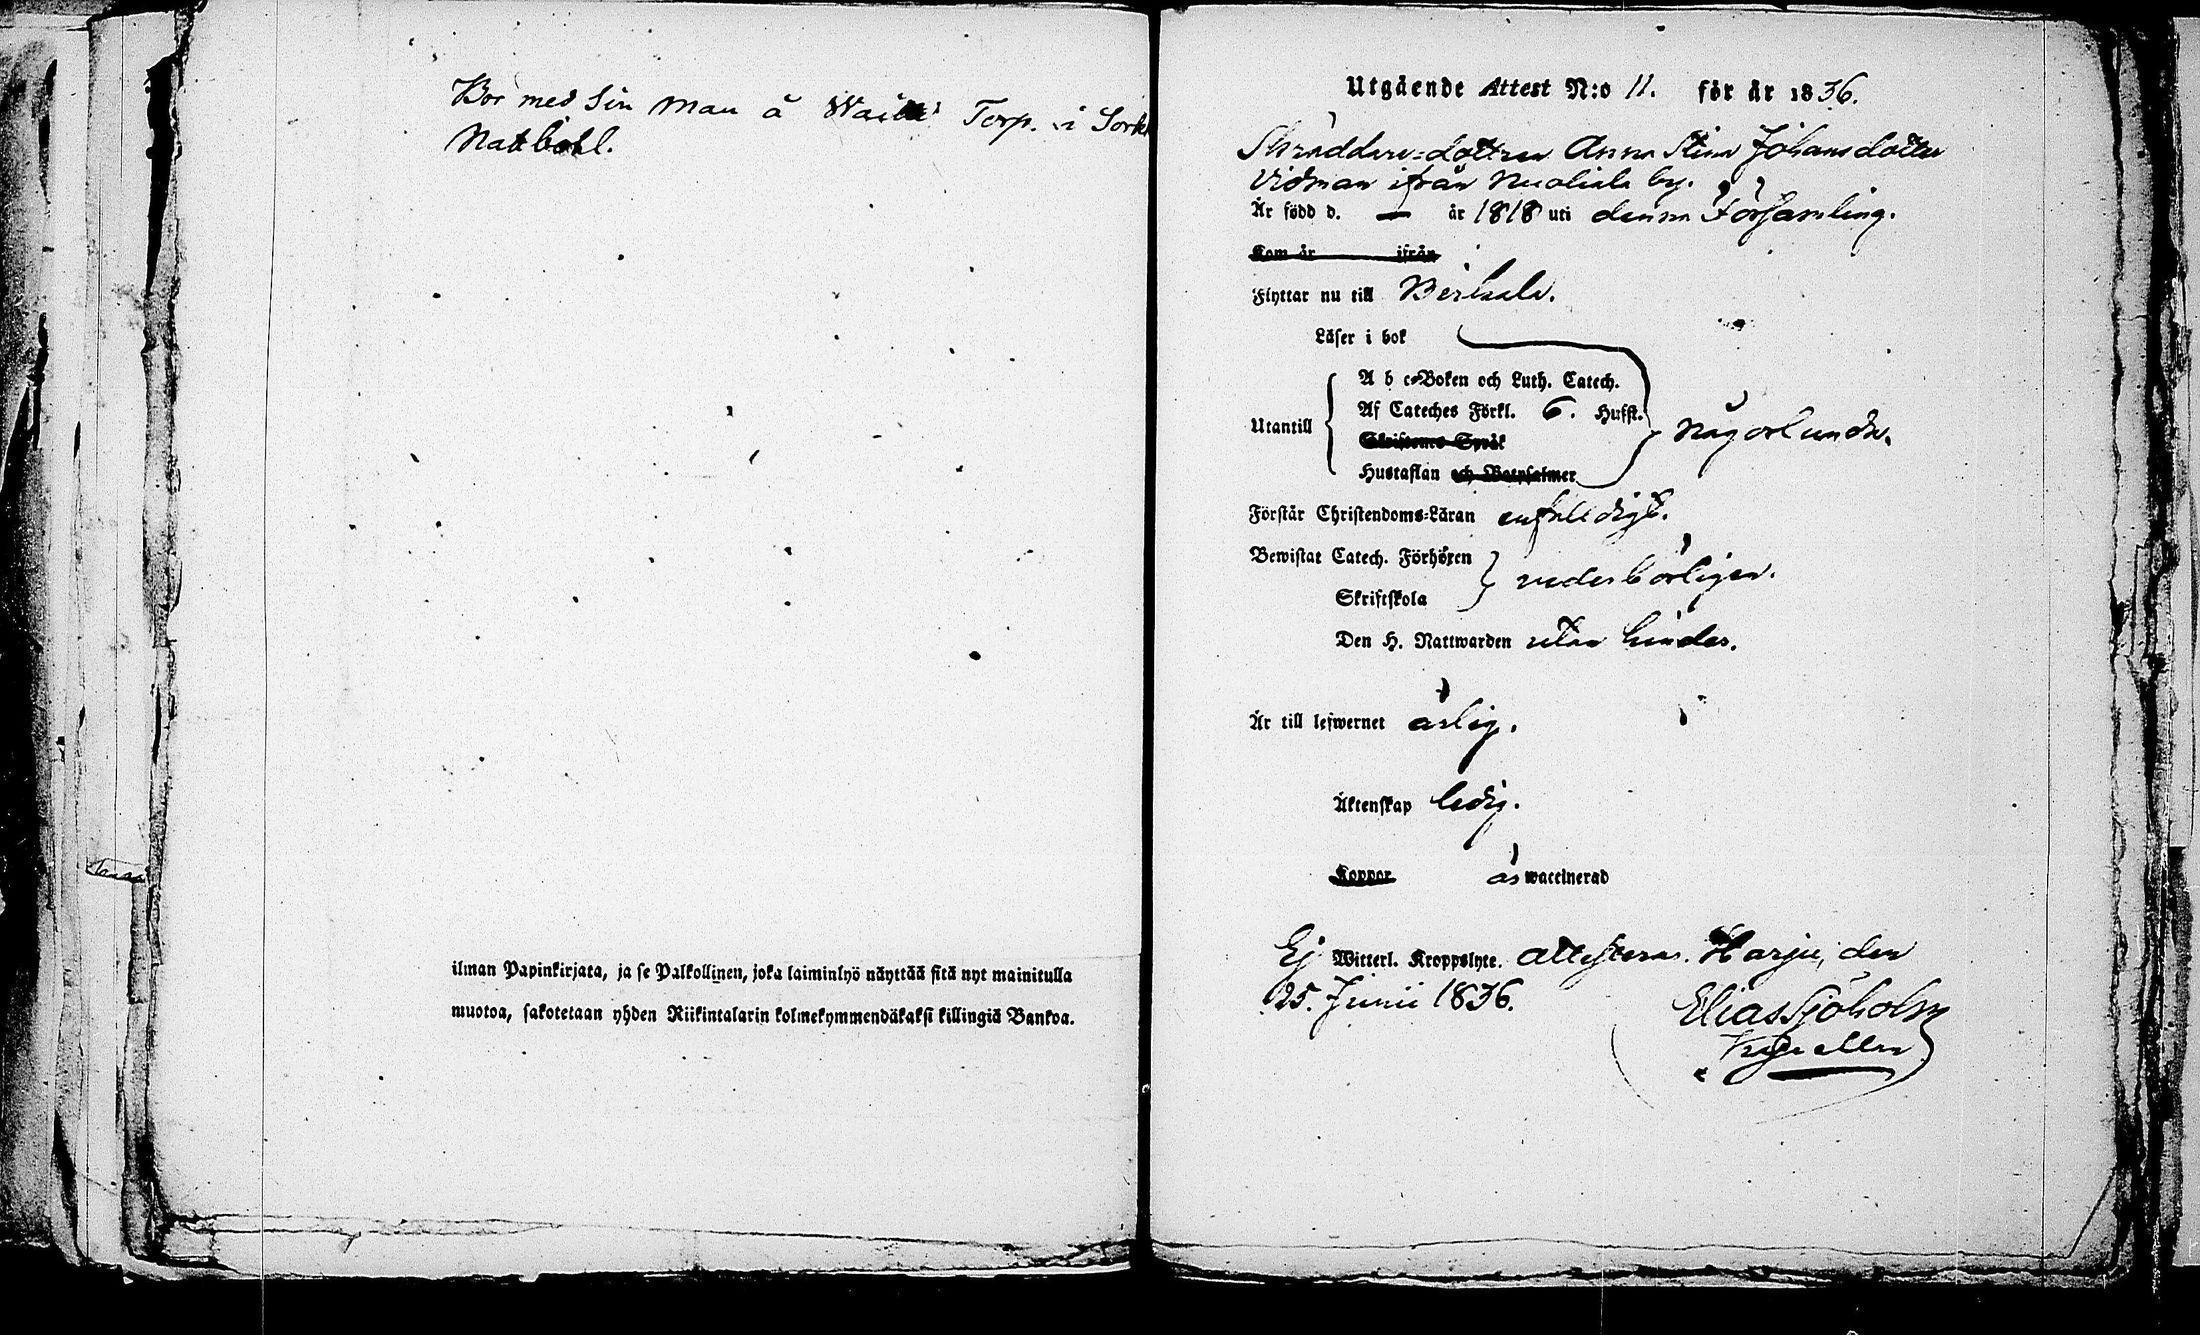 Bor med Sin Man å Torp. i Sork
Nattboll.
ilman Papinkirjata, ja se Palkollinen, joka laiminlyö näyttää sitä nyt mainitulla
muotoa, sakotetaan yhden Riikintalarin kolmekymmendäkaksi killingiä Bankoa.
Utgående Attest N:o 11. för år 1836.
Skräddare=dottren Anna Stina Johansdotter
Vidman ifrån Nuoliala by.
Är född d. — år 1818 uti denna Församling.
Kom år ifrån
Flyttar nu till Birkala.
Läser i bok
A b c=Boken och Luth. Catech.
Af Cateches Förkl. 6. Hufst.
Utantill
Någorlunda.
Skriftenes Språk
Hustaflan och Botpsalmer
Förstår Christendoms=Läran enfalldigt.
Bewistat Catech. Förhören
vederbörligen.
Skriftskola
Den H. Nattwarden utan hinder.
Är till lefwernet ärlig.
Äktenskap ledig.
Koppor är waccinerad
Ej Witterl. Kroppslyte. attesteras. Harju, den
25. Junii 1836.
Elias Sjöholm
Kapellan